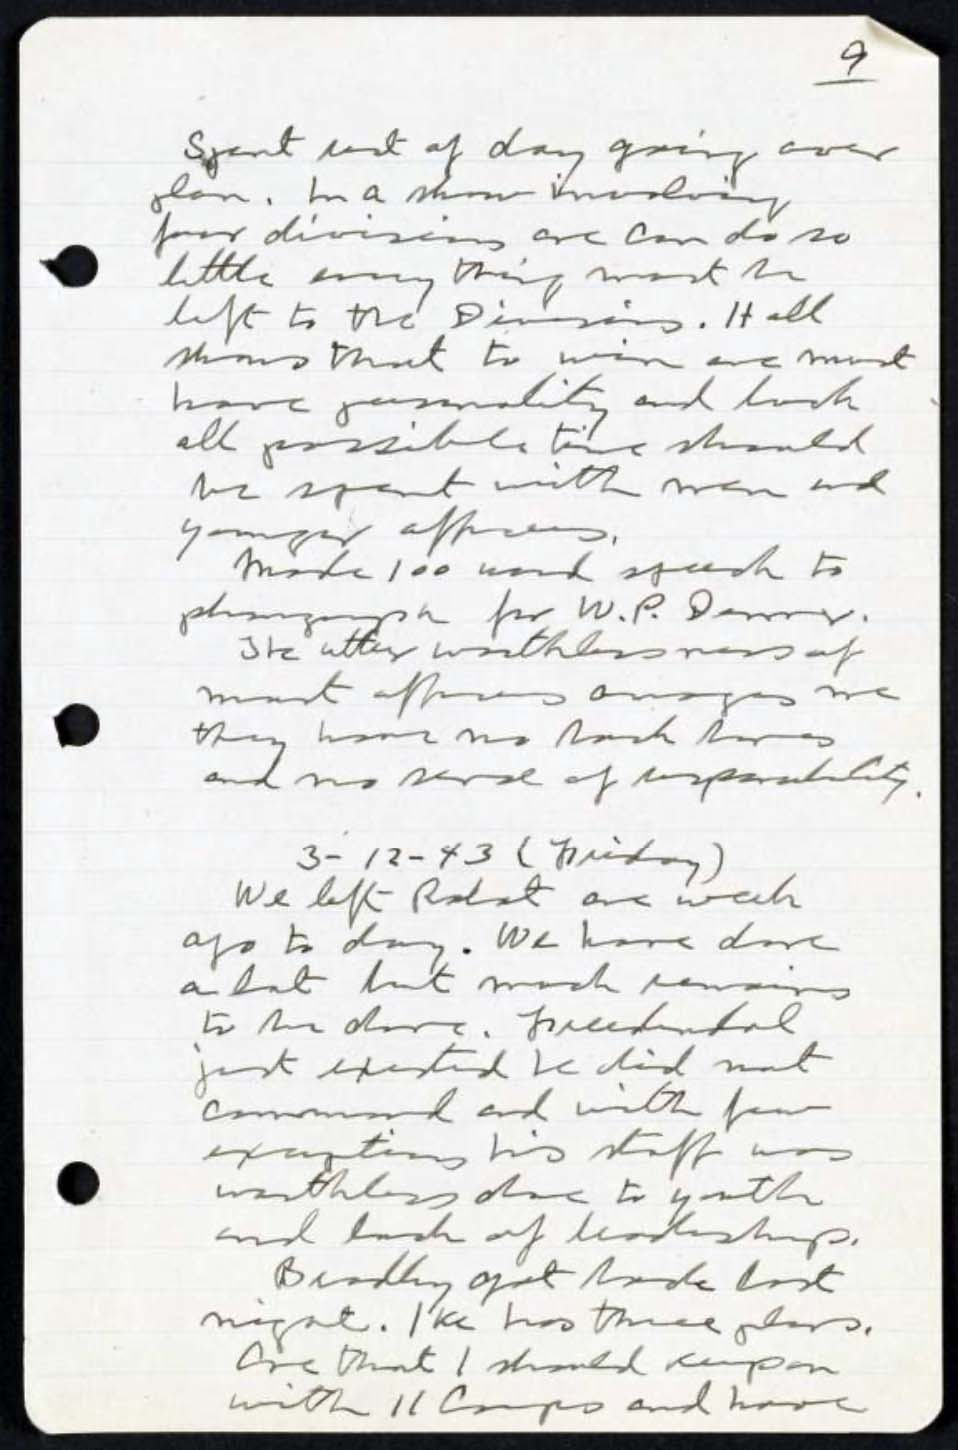 9
Spent rest of day going over
plan. In a show involving
four divisions one can do so
little everything must be
left to the Divisions. It all
shows that to win one must
have personality and luck
all possible time should
be spent with men and
younger officers.
Made 100 word speech to
phonograph for W.P. Dinner.
The utter worthlessness of
most officers me
they have no back bones
and no sense of responsibility.
3-12-43 (Friday)
We left Rabat one week
ago to day. We have done
a lot but much remains
to be done. Freedendal
just existed he did not
command and with few
exceptions his staff was
worthless due to youth
and lack of leadership.
Bradley got back last
night. Ike has three plans.
One that I should keep on
with II Corps and have